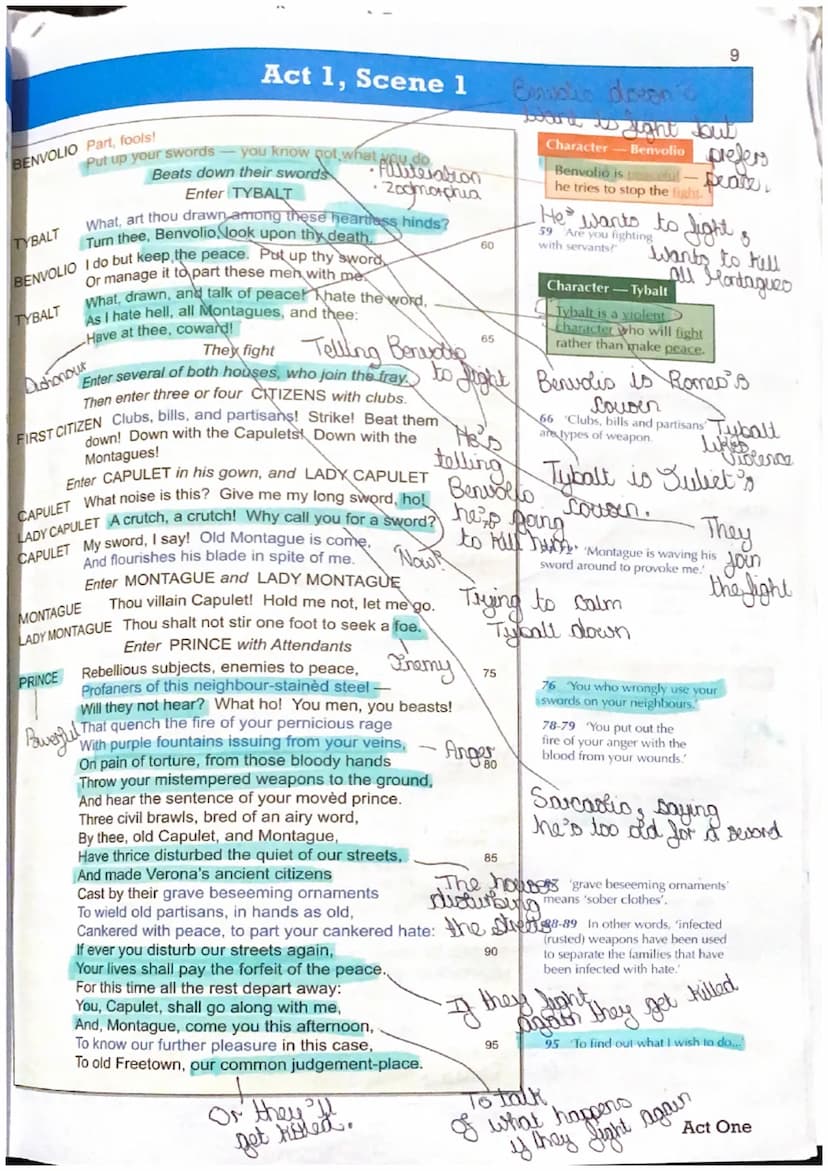 9
Act 1, Scene 1
Benvolio doesn't
want to fight but
prefers
peace.
BENVOLIO Part, fools!
Put up your swords — you know not what you do.
Beats down their swords
• Alliteration
Enter TYBALT
Character — Benvolio
Benvolio is peaceful —
he tries to stop the fight.
TYBALT What, art thou drawn among these heartless hinds?
Turn thee, Benvolio, look upon thy death. 60
BENVOLIO I do but keep the peace. Put up thy sword,
Or manage it to part these men with me.
TYBALT What, drawn, and talk of peace! I hate the word,
As I hate hell, all Montagues, and thee:
Have at thee, coward! 65
He wants to fight &
wants to kill
all Montagues
59 'Are you fighting
with servants?'
Character — Tybalt
Tybalt is a violent
character who will fight
rather than make peace.
Dishonour
They fight
Telling Benvolio
to fight
Enter several of both houses, who join the fray.
Then enter three or four CITIZENS with clubs.
FIRST CITIZEN Clubs, bills, and partisans! Strike! Beat them
down! Down with the Capulets! Down with the
Montagues!
Benvolio is Romeo's
cousin
66 'Clubs, bills and partisans'
are types of weapon.
Tybalt
likes
violence
He's
telling
Benvolio
he's going
to kill him.
Tybalt is Juliet's
cousin.
They
join
the fight
Enter CAPULET in his gown, and LADY CAPULET
CAPULET What noise is this? Give me my long sword, ho!
LADY CAPULET A crutch, a crutch! Why call you for a sword?
CAPULET My sword, I say! Old Montague is come,
And flourishes his blade in spite of me.
'Now!'
'Montague is waving his
sword around to provoke me.'
Enter MONTAGUE and LADY MONTAGUE
MONTAGUE Thou villain Capulet! Hold me not, let me go.
LADY MONTAGUE Thou shalt not stir one foot to seek a foe.
Trying to calm
Tybalt down
Enemy
Enter PRINCE with Attendants
PRINCE Rebellious subjects, enemies to peace, 75
Profaners of this neighbour-stainèd steel —
Will they not hear? What ho! You men, you beasts!
That quench the fire of your pernicious rage
With purple fountains issuing from your veins,
On pain of torture, from those bloody hands 80
Throw your mistempered weapons to the ground,
And hear the sentence of your movèd prince.
Three civil brawls, bred of an airy word,
By thee, old Capulet, and Montague,
Have thrice disturbed the quiet of our streets, 85
And made Verona's ancient citizens
Cast by their grave beseeming ornaments
To wield old partisans, in hands as old,
Cankered with peace, to part your cankered hate:
If ever you disturb our streets again, 90
Your lives shall pay the forfeit of the peace.
For this time all the rest depart away:
You, Capulet, shall go along with me,
And, Montague, come you this afternoon,
To know our further pleasure in this case, 95
To old Freetown, our common judgement-place.
Powerful
Anger
76 'You who wrongly use your
swords on your neighbours.'
78-79 'You put out the
fire of your anger with the
blood from your wounds.'
Sarcastic, saying
he's too old for a sword
The houses
disturbing
the streets
'grave beseeming ornaments'
means 'sober clothes'.
88-89 In other words, 'infected
(rusted) weapons have been used
to separate the families that have
been infected with hate.'
If they fight
again they get killed
95 'To find out what I wish to do...'
Or they'll
get killed.
To talk
of what happens
if they fight again
Act One